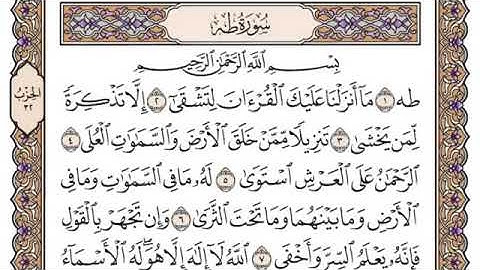 سُورَةُ طه
بِسْمِ ٱللَّهِ ٱلرَّحْمَٰنِ ٱلرَّحِيمِ
الحِزْبُ
٣٢
طه ١ مَآ أَنزَلْنَا عَلَيْكَ ٱلْقُرْءَانَ لِتَشْقَىٰٓ ٢ إِلَّا تَذْكِرَةً
لِّمَن يَخْشَىٰ ٣ تَنزِيلًا مِّمَّنْ خَلَقَ ٱلْأَرْضَ وَٱلسَّمَٰوَٰتِ ٱلْعُلَى ٤
ٱلرَّحْمَٰنُ عَلَى ٱلْعَرْشِ ٱسْتَوَىٰ ٥ لَهُۥ مَا فِى ٱلسَّمَٰوَٰتِ وَمَا فِى
ٱلْأَرْضِ وَمَا بَيْنَهُمَا وَمَا تَحْتَ ٱلثَّرَىٰ ٦ وَإِن تَجْهَرْ بِٱلْقَوْلِ
فَإِنَّهُۥ يَعْلَمُ ٱلسِّرَّ وَأَخْفَى ٧ ٱللَّهُ لَآ إِلَٰهَ إِلَّا هُوَ لَهُ ٱلْأَسْمَآءُ